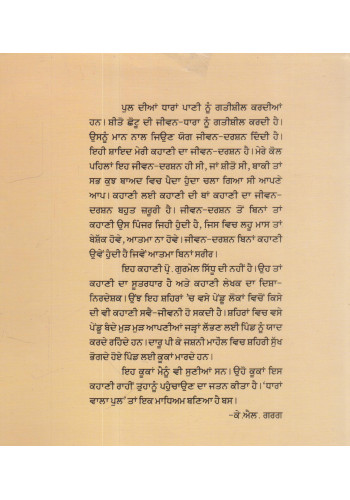 ਪੁਲ ਦੀਆਂ ਧਾਰਾਂ ਪਾਣੀ ਨੂੰ ਗਤੀਸ਼ੀਲ ਕਰਦੀਆਂ
ਹਨ। ਸ਼ੀਤੋ ਛੋਟੂ ਦੀ ਜੀਵਨ-ਧਾਰਾ ਨੂੰ ਗਤੀਸ਼ੀਲ ਕਰਦੀ ਹੈ।
ਉਸਨੂੰ ਮਾਨ ਨਾਲ ਜਿਉਣ ਯੋਗ ਜੀਵਨ-ਦਰਸ਼ਨ ਦਿੰਦੀ ਹੈ।
ਇਹੀ ਸ਼ਾਇਦ ਮੇਰੀ ਕਹਾਣੀ ਦਾ ਜੀਵਨ-ਦਰਸ਼ਨ ਹੈ। ਮੇਰੇ ਕੋਲ
ਪਹਿਲਾਂ ਇਹ ਜੀਵਨ-ਦਰਸ਼ਨ ਹੀ ਸੀ, ਜਾਂ ਸ਼ੀਤੋ ਸੀ, ਬਾਕੀ ਤਾਂ
ਸਭ ਕੁਝ ਬਾਅਦ ਵਿਚ ਪੈਦਾ ਹੁੰਦਾ ਚਲਾ ਗਿਆ ਸੀ ਆਪਣੇ
ਆਪ। ਕਹਾਣੀ ਲਈ ਕਹਾਣੀ ਦੀ ਥਾਂ ਕਹਾਣੀ ਦਾ ਜੀਵਨ-
ਦਰਸ਼ਨ ਬਹੁਤ ਜ਼ਰੂਰੀ ਹੈ। ਜੀਵਨ-ਦਰਸ਼ਨ ਤੋਂ ਬਿਨਾਂ ਤਾਂ
ਕਹਾਣੀ ਉਸ ਪਿੰਜਰ ਜਿਹੀ ਹੁੰਦੀ ਹੈ, ਜਿਸ ਵਿਚ ਲਹੂ ਮਾਸ ਤਾਂ
ਬੇਸ਼ੱਕ ਹੋਵੇ, ਆਤਮਾ ਨਾ ਹੋਵੇ। ਜੀਵਨ-ਦਰਸ਼ਨ ਬਿਨਾਂ ਕਹਾਣੀ
ਉਵੇਂ ਹੁੰਦੀ ਹੈ ਜਿਵੇਂ ਆਤਮਾ ਬਿਨਾਂ ਸਰੀਰ।
ਇਹ ਕਹਾਣੀ ਪ੍ਰੋ. ਗੁਰਮੇਲ ਸਿੱਧੂ ਦੀ ਨਹੀਂ ਹੈ। ਉਹ ਤਾਂ
ਕਹਾਣੀ ਦਾ ਸੂਤਰਧਾਰ ਹੈ ਅਤੇ ਕਹਾਣੀ ਲੇਖਕ ਦਾ ਦਿਸ਼ਾ-
ਨਿਰਦੇਸ਼ਕ। ਉਂਝ ਇਹ ਸ਼ਹਿਰਾਂ 'ਚ ਵਸੇ ਪੇਂਡੂ ਲੋਕਾਂ ਵਿਚੋਂ ਕਿਸੇ
ਦੀ ਵੀ ਕਹਾਣੀ ਸਵੈ-ਜੀਵਨੀ ਹੋ ਸਕਦੀ ਹੈ। ਸ਼ਹਿਰਾਂ ਵਿਚ ਵਸੇ
ਪੇਂਡੂ ਬੰਦੇ ਮੁੜ ਮੁੜ ਆਪਣੀਆਂ ਜੜ੍ਹਾਂ ਲੱਭਣ ਲਈ ਪਿੰਡ ਨੂੰ ਯਾਦ
ਕਰਦੇ ਰਹਿੰਦੇ ਹਨ। ਦਾਰੂ ਪੀ ਕੇ ਜਸ਼ਨੀ ਮਾਹੌਲ ਵਿਚ ਸ਼ਹਿਰੀ ਸੁੱਖ
ਭੋਗਦੇ ਹੋਏ ਪਿੰਡ ਲਈ ਕੂਕਾਂ ਮਾਰਦੇ ਹਨ।
ਇਹ ਕੂਕਾਂ ਮੈਨੂੰ ਵੀ ਸੁਣੀਆਂ ਸਨ। ਉਹੋ ਕੂਕਾਂ ਇਸ
ਕਹਾਣੀ ਰਾਹੀਂ ਤੁਹਾਨੂੰ ਪਹੁੰਚਾਉਣ ਦਾ ਜਤਨ ਕੀਤਾ ਹੈ। 'ਧਾਰਾਂ
ਵਾਲਾ ਪੁਲ' ਤਾਂ ਇਕ ਮਾਧਿਅਮ ਬਣਿਆ ਹੈ ਬਸ।
-ਕੇ.ਐਲ. ਗਰਗ